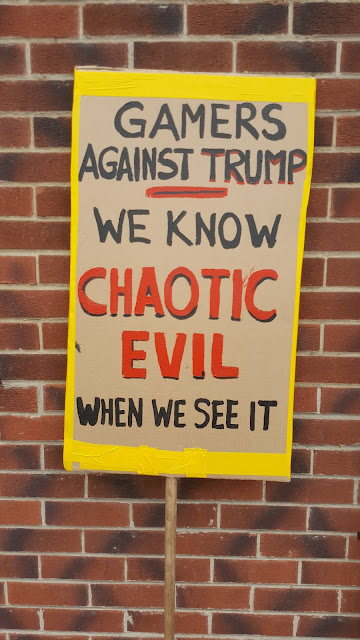 GAMERS
AGAINST TRUMP
WE KNOW
CHAOTIC
EVIL
WHEN WE SEE IT